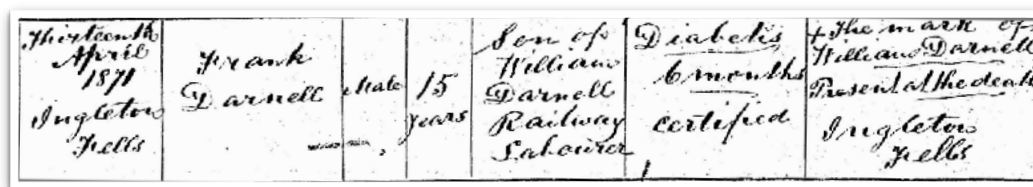 Thirteenth
April
1871
Ingleton
Fells
Frank
Darnell
Male
15
years
Son of
William
Darnell
Railway
Labourer
Diabetis
6 months
certified
+ The mark of
William Darnell
Present at the death
Ingleton
Fells